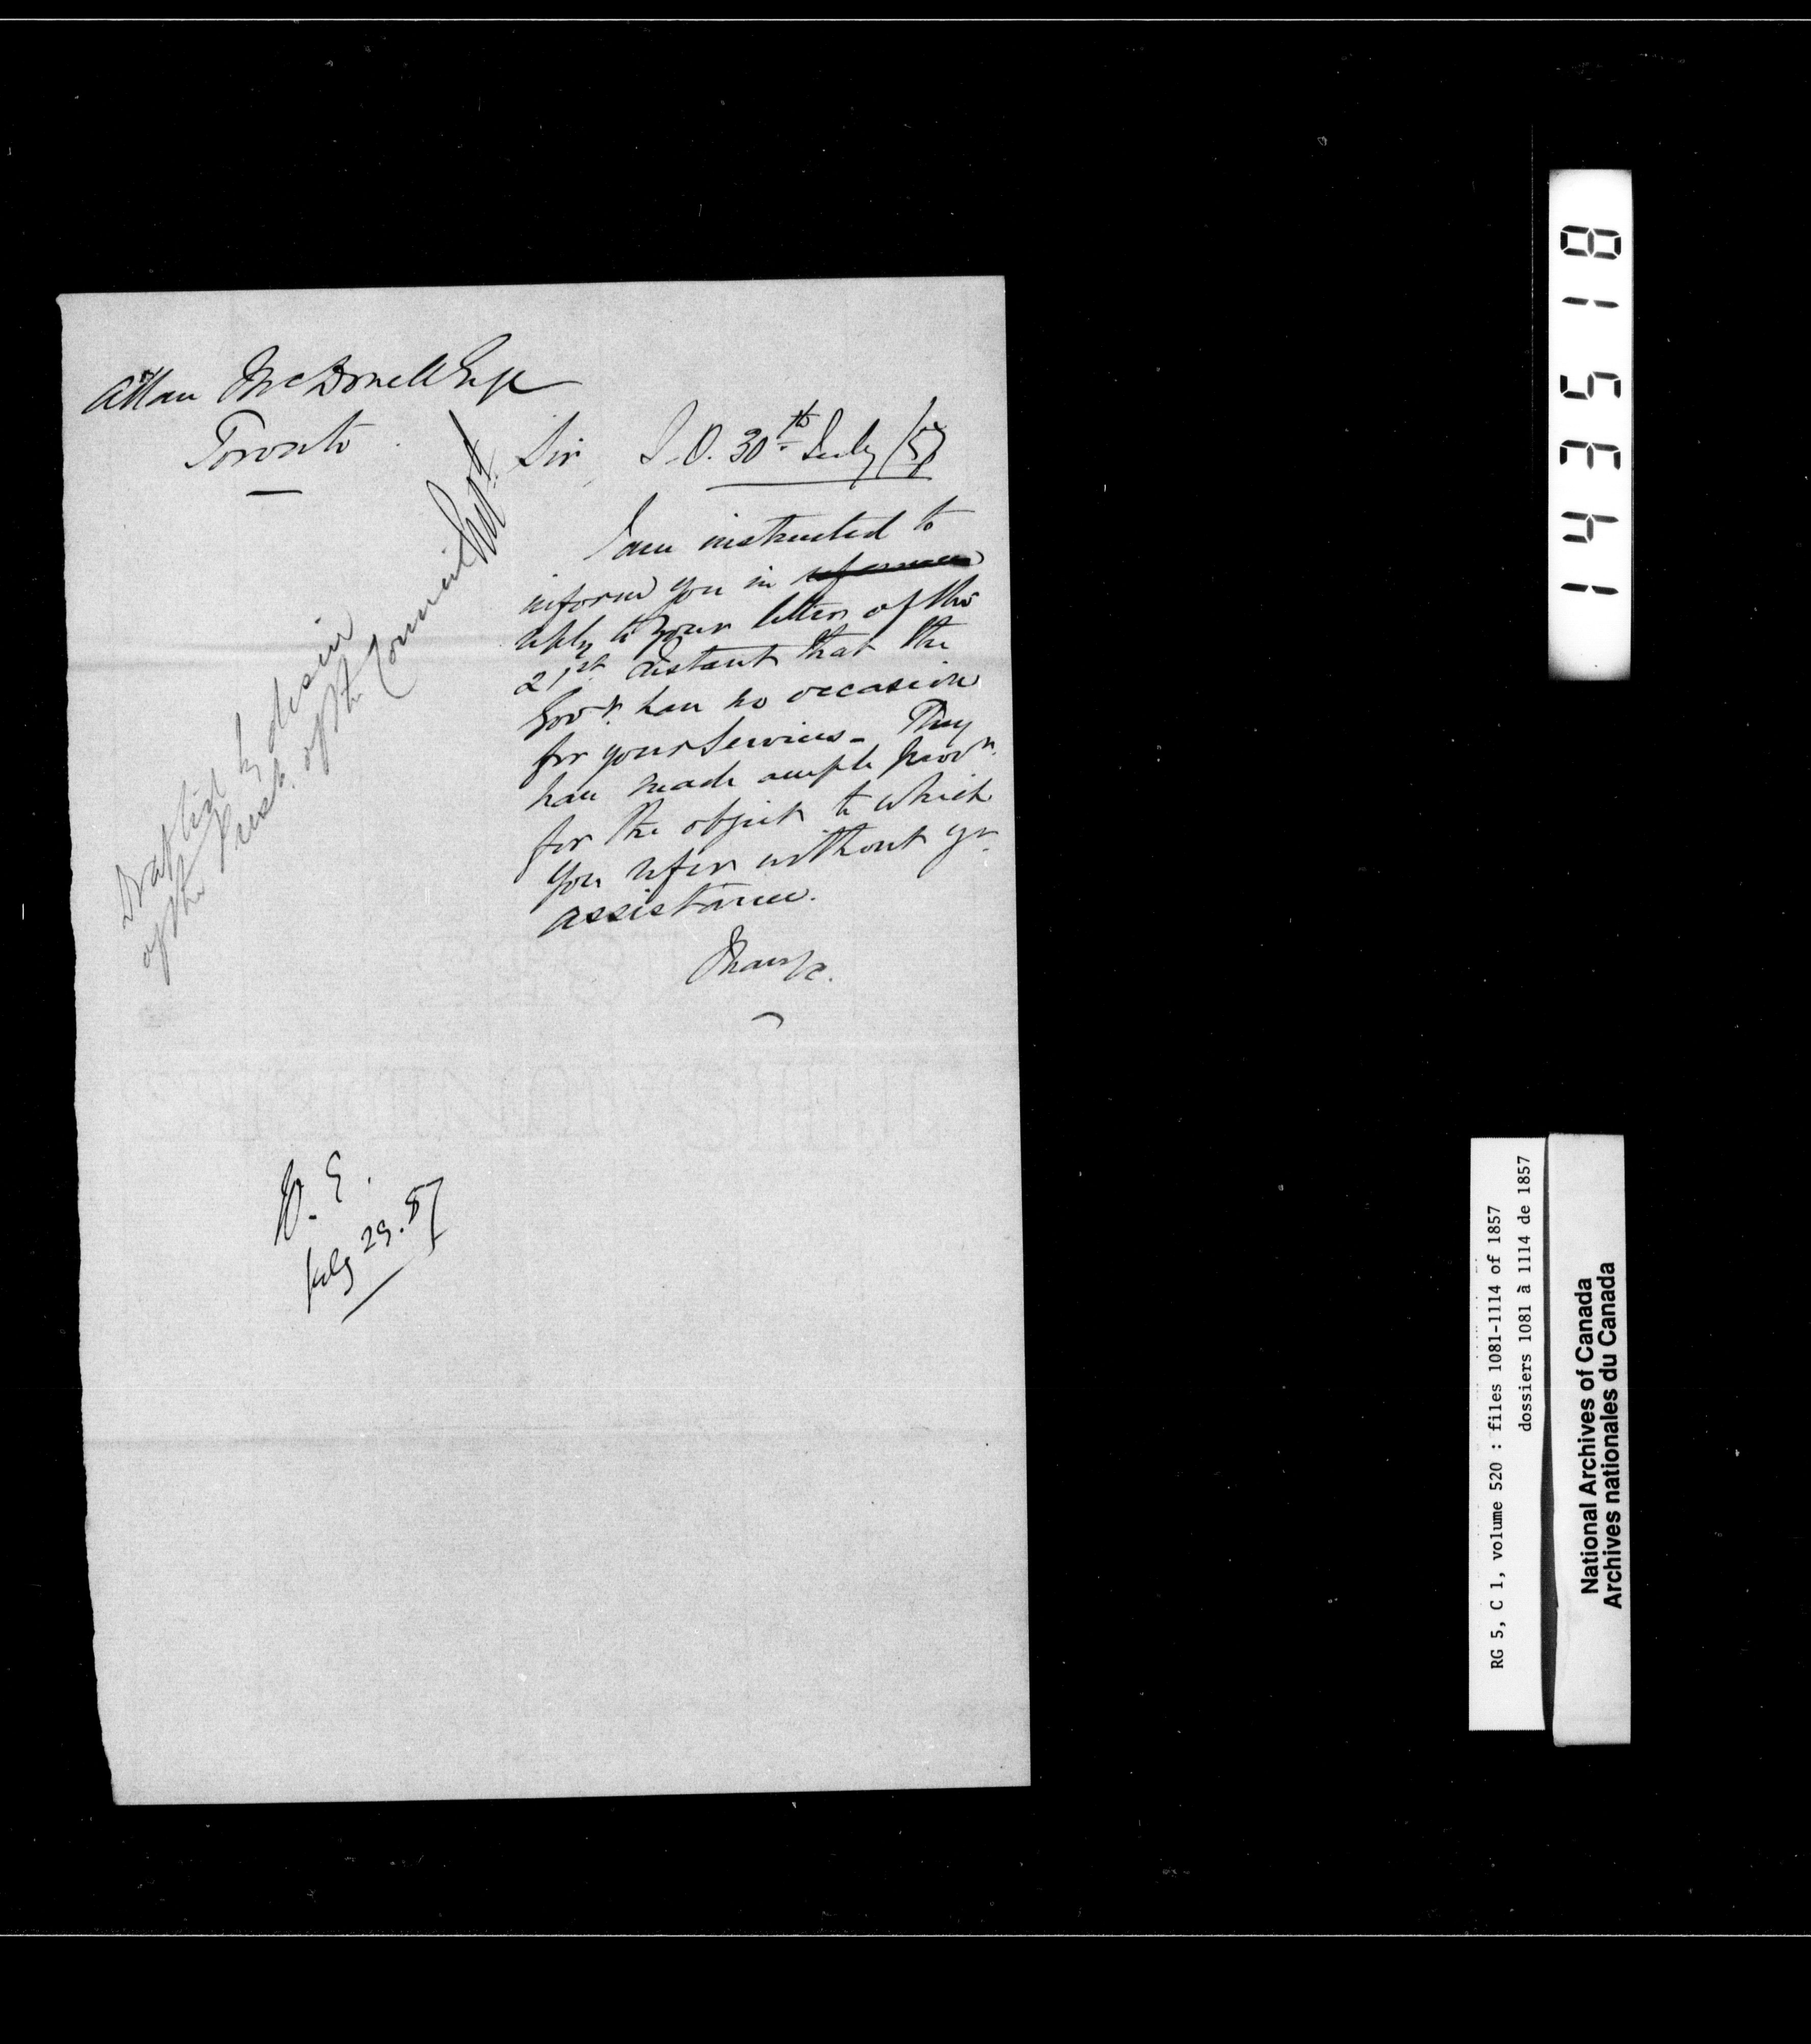 Allan McDonell Esqr
Toronto
Sir S.O. 30th July /57
I am instructed to
inform you in reference
reply to your letter of the
21st instant that the
Govt. have no occasion
for your services - They
have made ample provn.
for the object to which
you refer without yr.
assistance.
I have &c.
Drafted by desire
of the Presdt. of the Council
W. E.
July 29. 57
143518
RG 5, C 1, volume 520 : files 1081-1114 of 1857
dossiers 1081 à 1114 de 1857
National Archives of Canada
Archives nationales du Canada